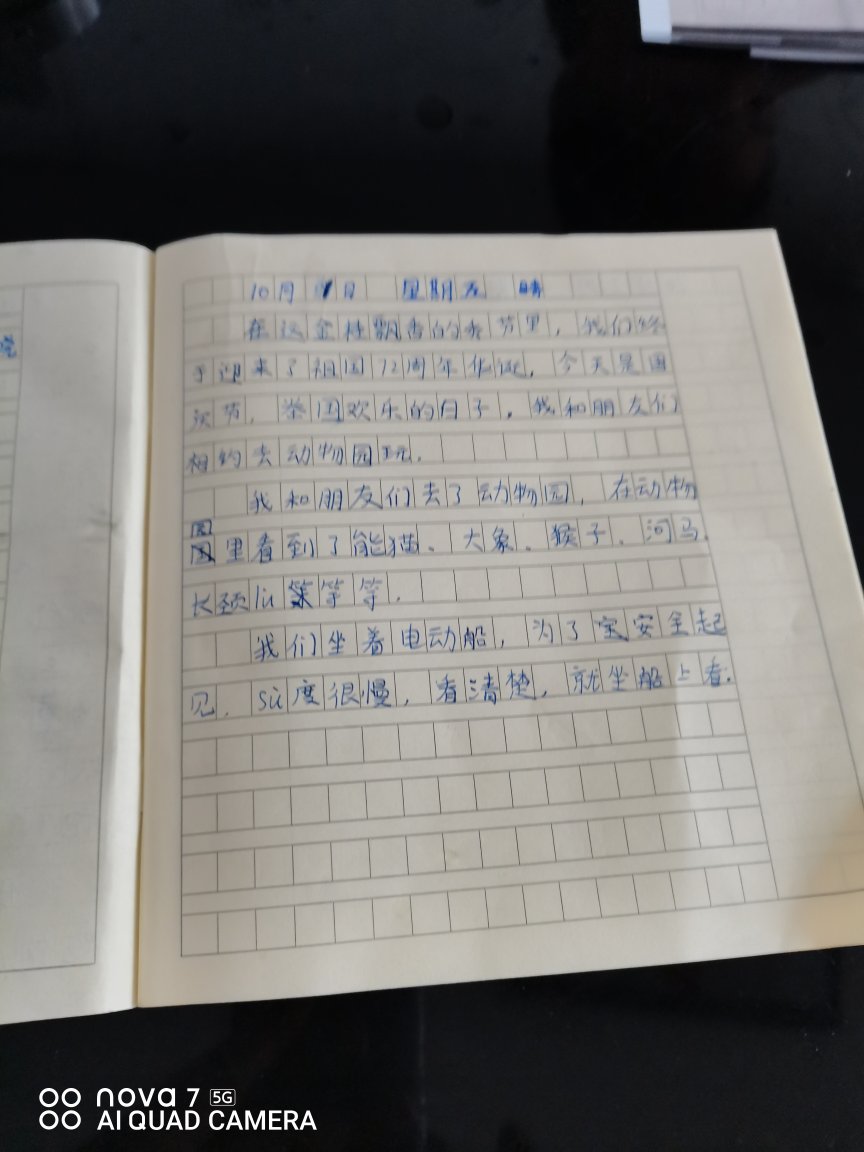 10月1日 星期五 晴
在这金桂飘香的季节里，我们终
于迎来了祖国72周年华诞，今天是国
庆节，举国欢乐的日子，我和朋友们
相约去动物园玩，
我和朋友们去了动物园，在动物
园
里看到了能猫、大象、猴子、河马、
长颈lù等等，
我们坐着电动船，为了安全起
见，sù度很慢，看清楚，就坐船上看，
nova 7 5G
AI QUAD CAMERA